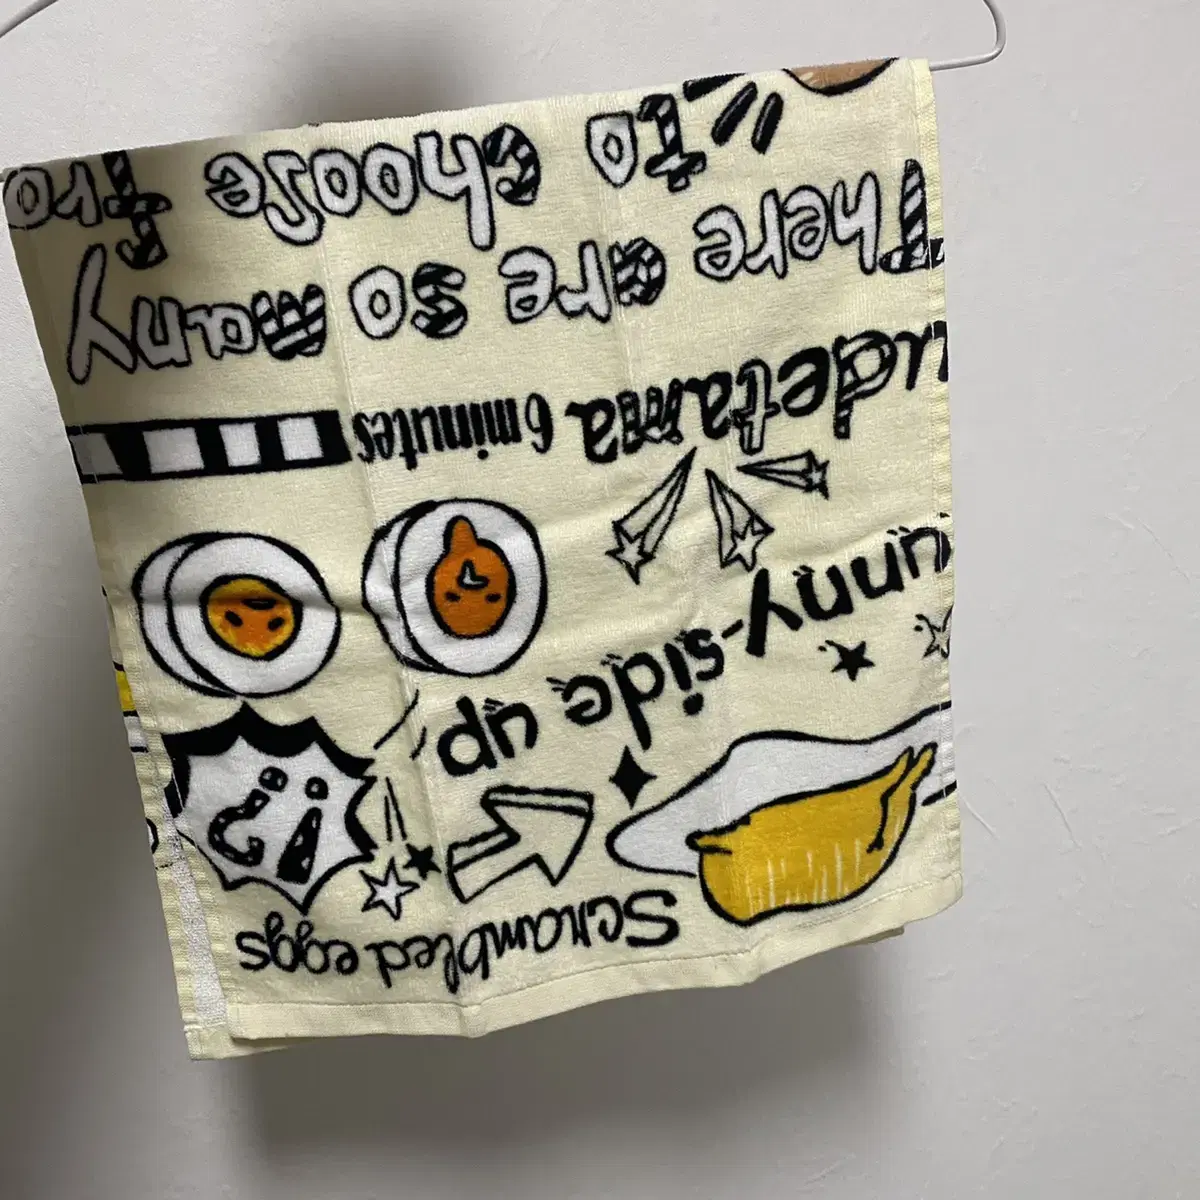 Scrambled eggs
!?
unny-side up
udetama 6 minutes
There are so many
to choose fro